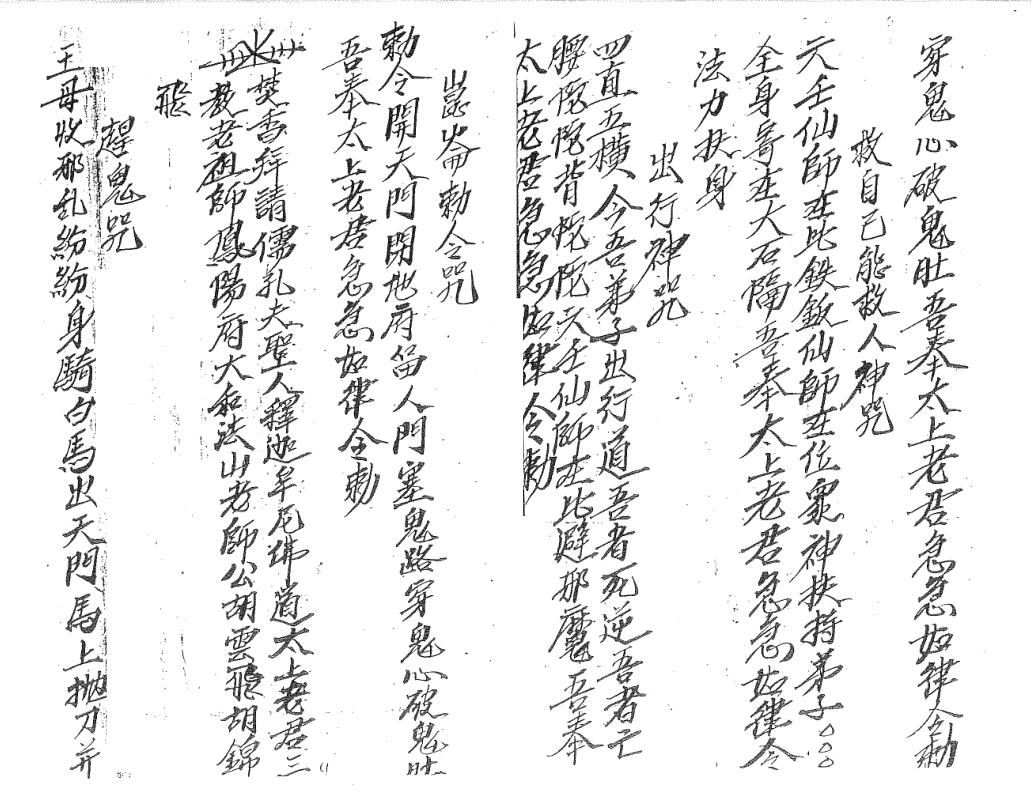 穿鬼心破鬼肚吾奉太上老君急急如律令勅
救自己能救人神咒
六壬仙師在此鉄釵仙師在位眾神扶持弟子○○○
全身寄在大石隔吾奉太上老君急急如律令
法力扶身
出行神咒
四直五橫今吾弟子出行道吾者死逆吾者亡
腰陀陀背陀陀六壬仙師在此避邪魔吾奉
太上老君急急如律令勅
崑崙勅令咒
勅令開天門閉地府留人門塞鬼路穿鬼心破鬼肚
吾奉太上老君急急如律令勅
焚香拜請儒孔夫聖人釋迦牟尼佛道太上老君三
教老祖師鳳陽府大和法山老師公胡雲飛胡錦
飛
趕鬼咒
王母收邪乱紛紛身騎白馬出天門馬上拋刀并